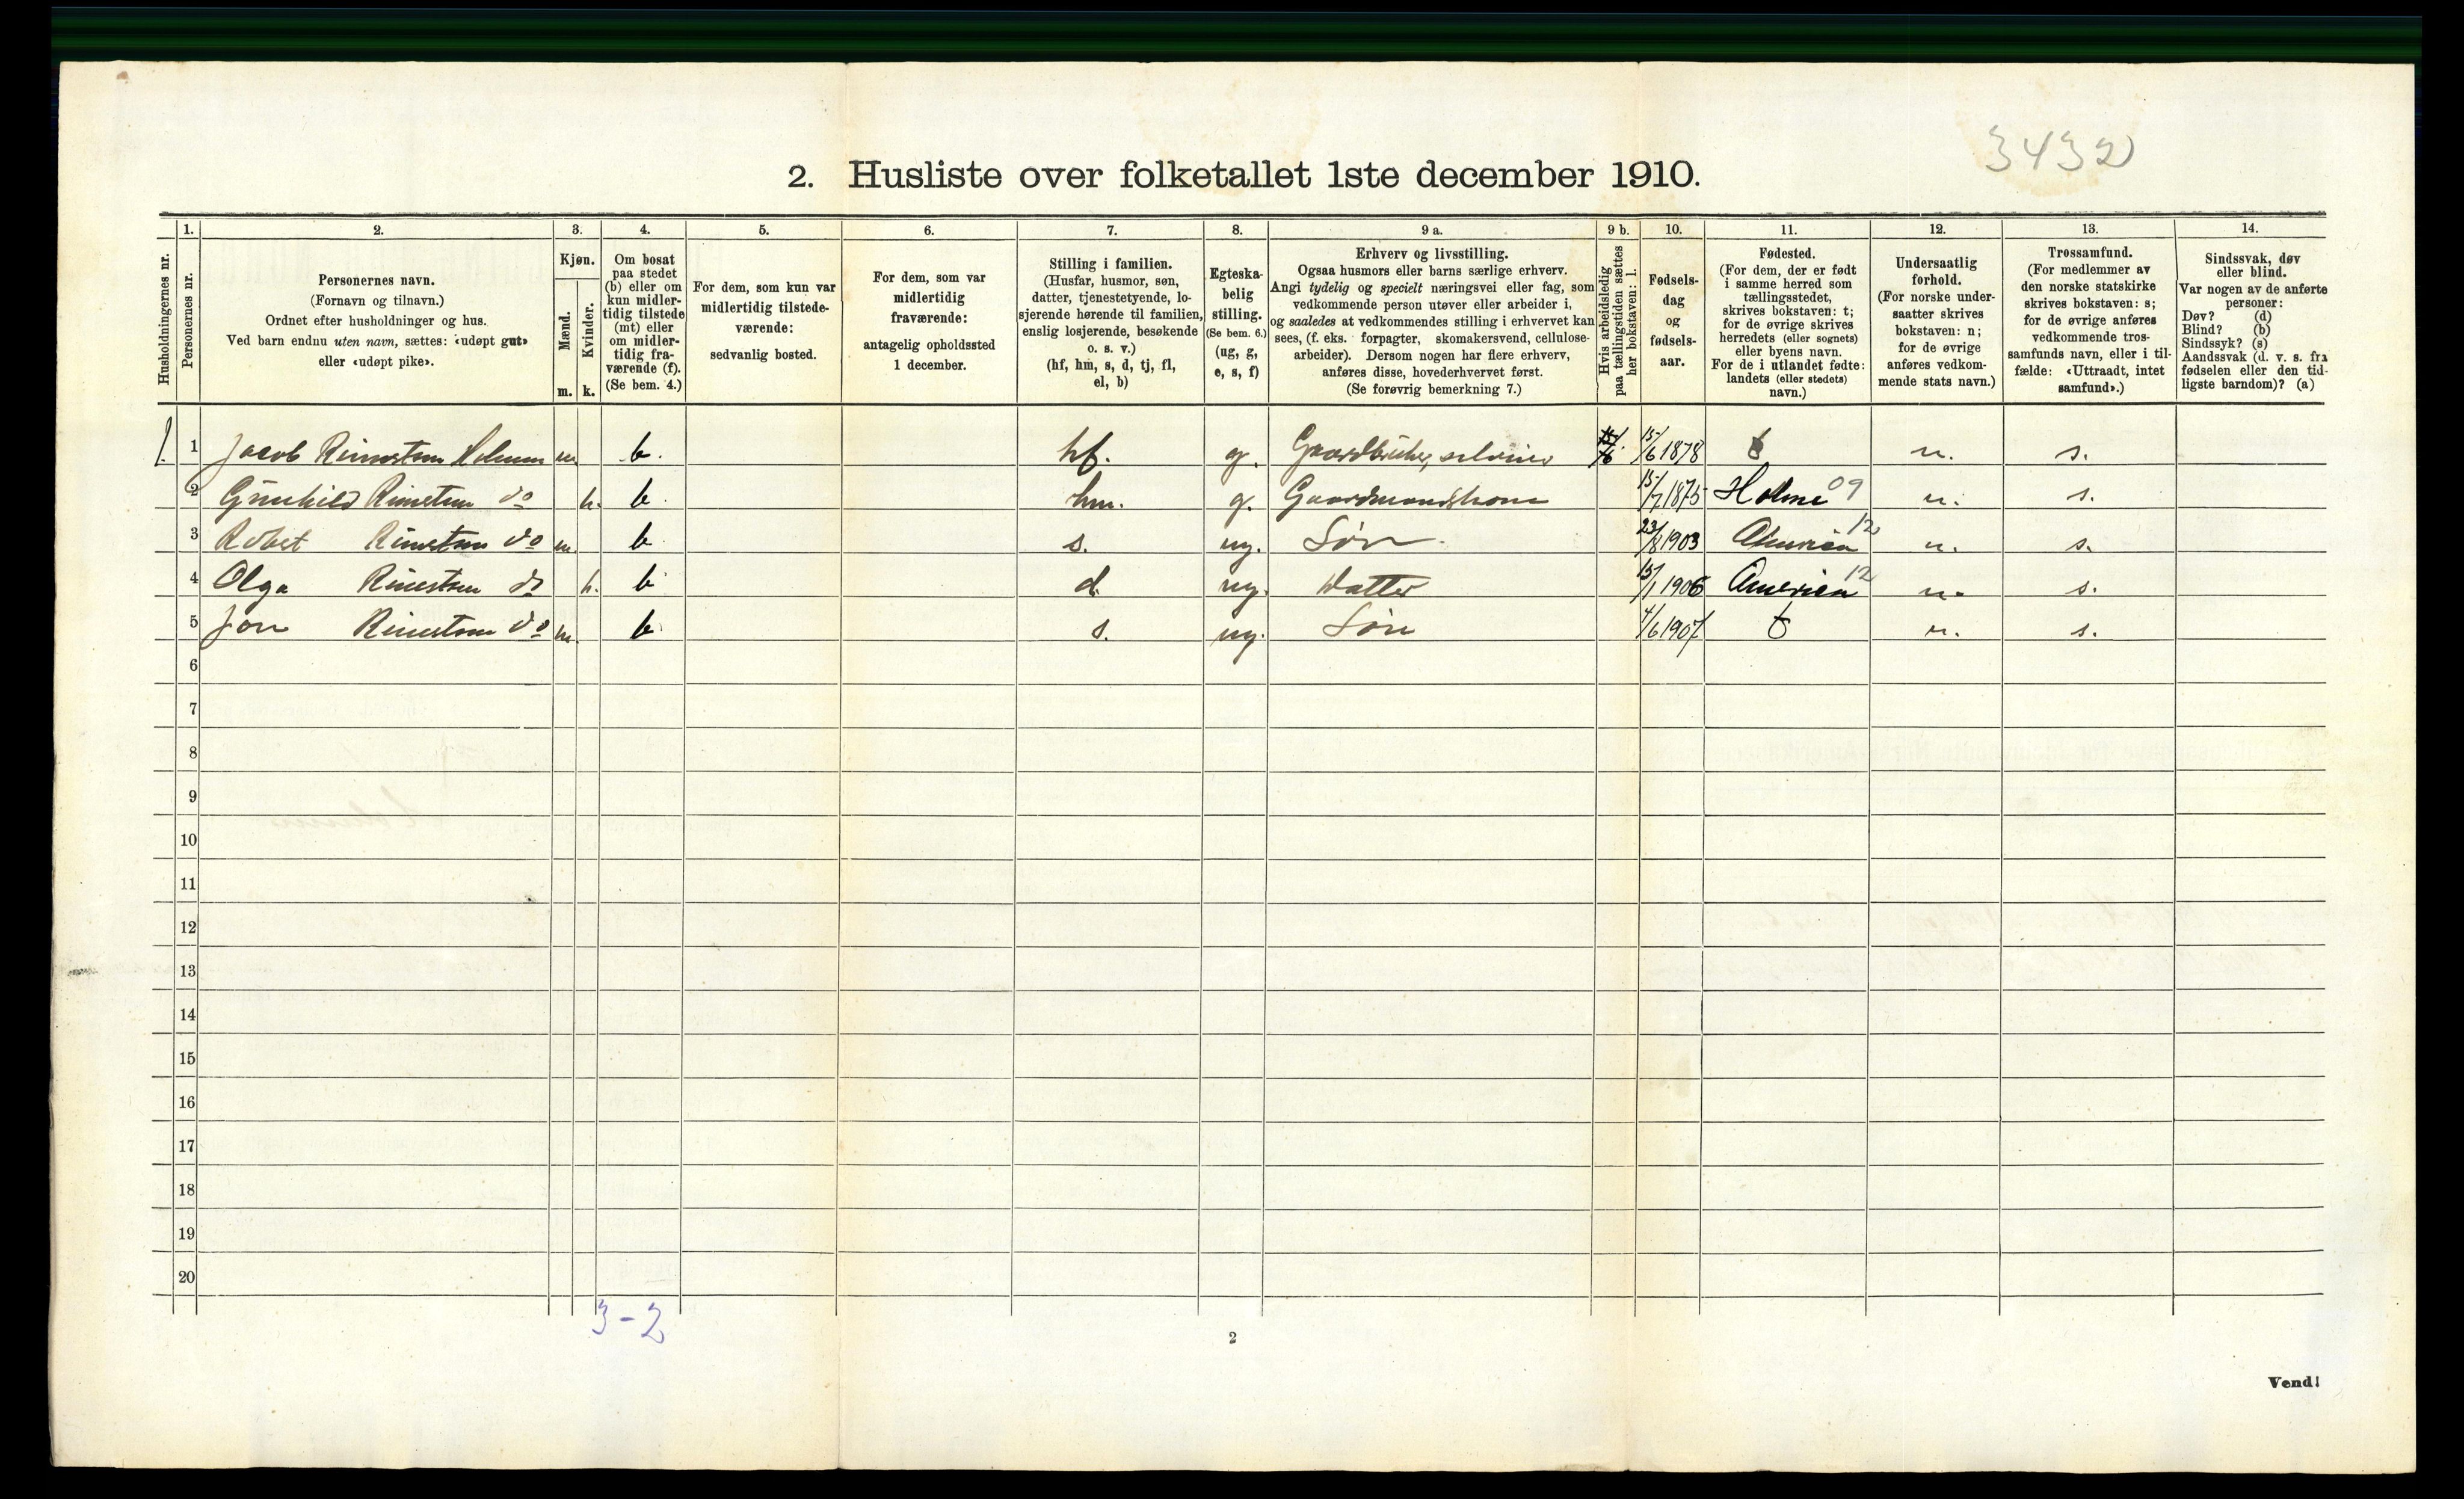 3432
2. Husliste over folketallet 1ste december 1910.
Husholdningernes nr.
1.
Personernes nr.
2.
Personernes navn.
(Fornavn og tilnavn.)
Ordnet efter husholdninger og hus.
Ved barn endnu uten navn, sættes: «udøpt gut»
eller «udøpt pike».
3.
Kjøn.
Mænd.
m.
Kvinder.
k.
4.
Om bosat
paa stedet
(b) eller om
kun midler-
tidig tilstede
(mt) eller
om midler-
tidig fra-
værende (f).
(Se bem. 4.)
5.
For dem, som kun var
midlertidig tilstede-
værende:
sedvanlig bosted.
6.
For dem, som var
midlertidig
fraværende:
antagelig opholdssted
1 december.
7.
Stilling i familien.
(Husfar, husmor, søn,
datter, tjenestetyende, lo-
sjerende hørende til familien,
enslig losjerende, besøkende
o. s. v.)
(hf, hm, s, d, tj, fl,
el, b)
8.
Egteska-
belig
stilling.
(Se bem. 6.)
(ug, g,
e, s, f)
9 a.
Erhverv og livsstilling.
Ogsaa husmors eller barns særlige erhverv.
Angi tydelig og specielt næringsvei eller fag, som
vedkommende person utøver eller arbeider i,
og saaledes at vedkommendes stilling i erhvervet kan
sees, (f. eks. forpagter, skomakersvend, cellulose-
arbeider). Dersom nogen har flere erhverv,
anføres disse, hovederhvervet først.
(Se forøvrig bemerkning 7.)
9 b.
Hvis arbeidsledig
paa tællingstiden sættes
her bokstaven: l.
10.
Fødsels-
dag
og
fødsels-
aar.
11.
Fødested.
(For dem, der er født
i samme herred som
tællingsstedet,
skrives bokstaven: t;
for de øvrige skrives
herredets (eller sognets)
eller byens navn.
For de i utlandet fødte:
landets (eller stedets)
navn.)
12.
Undersaatlig
forhold.
(For norske under-
saatter skrives
bokstaven: n;
for de øvrige
anføres vedkom-
mende stats navn.)
13.
Trossamfund.
(For medlemmer av
den norske statskirke
skrives bokstaven: s;
for de øvrige anføres
vedkommende tros-
samfunds navn, eller i til-
fælde: «Uttraadt, intet
samfund».)
14.
Sindssvak, døv
eller blind.
Var nogen av de anførte
personer:
Døv? (d)
Blind? (b)
Sindssyk? (s)
Aandssvak (d. v. s. fra
fødselen eller den tid-
ligste barndom)? (a)
1. 1 Jacob Rimestam Holmen m. b. hf. g. Gaardbruker, selveier 15/6 1878 t n. s.
2 Gunhild Rimestam do k. b. hm. g. Gaardmandskone 15/7 1875 Holme 09 n. s.
3 Robet Rimestam do m. b s. ug. Søn. 23/8 1903 America 12 n. s.
4 Olga Rimestam do k. b d. ug. Datter 15/1 1906 America 12 n. s.
5 Jon Rimestam do m. b s. ug. Søn 4/6 1907 t n. s.
6
7
8
9
10
11
12
13
14
15
16
17
18
19
20
3-2
2
Vend!